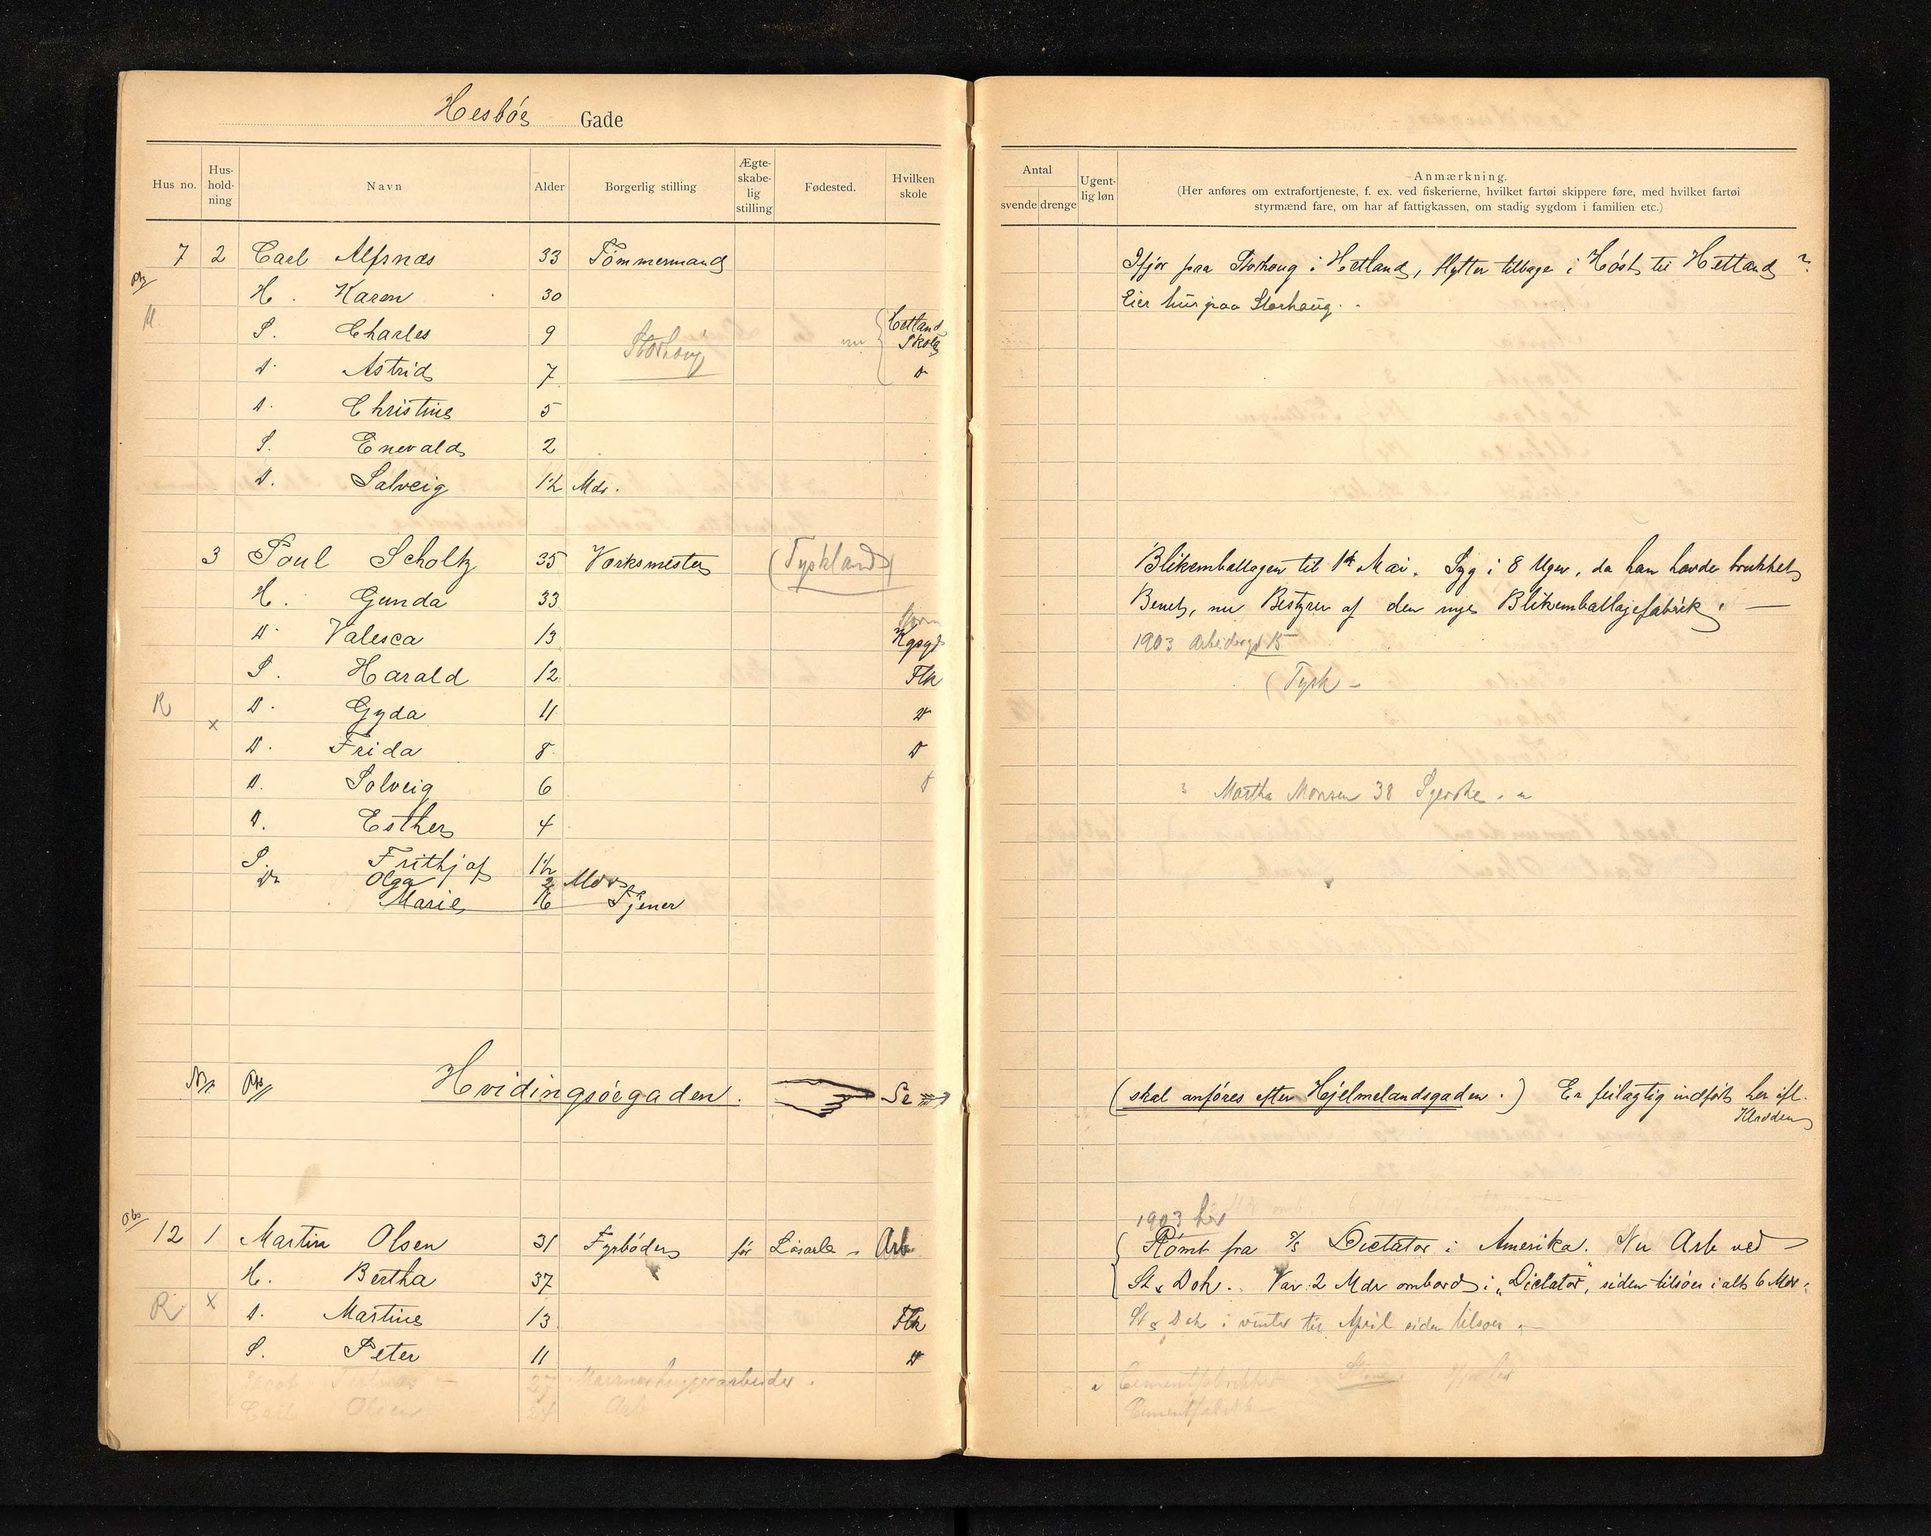 Hesbøs Gade
Hus no. Hus-hold-ning Navn Alder Borgerlig stilling Ægte-skabe-lig stilling Fødested. Hvilken skole
Antal svende drenge Ugent-lig løn Anmærkning.
(Her anføres om extrafortjeneste, f. ex. ved fiskerierne, hvilket fartøi skippere føre, med hvilket fartøi
styrmænd fare, om har af fattigkassen, om stadig sygdom i familien etc.)
7 2 Carl Alfsnæs 33 Tømmermand Ifjor paa Storhoug i Hetland, flytter tilbage i Høst til Hetland ?
H. Karen 30 Eier hus paa Storhaug.
S. Charles 9 Storhoug nu Hetland Skole
D. Astrid 7 D
D. Christine 5
S. Enevald 2
D. Solveig 1½ Mdr.
3 Poul Scholtz 35 Værksmester (Tyskland) Blikemballagen til 1st Mai. Syg i 8 Uger, da han havde brukket
H. Gunda 33 Benet, nu Bestyrer af den nye Blikemballagefabrik. —
D. Valesca 13 Kgsgd 1903 Arbeidergd 15
S. Harald 12 Flk (Tysk –
R D. Gyda 11 D
x D. Frida 8 D
D. Solveig 6 D Martha Monsen 38 Syerske. „
D. Esther 4
S. Frithjof 1½
D. Olga 2 Mdr
Marie 16 Tjener
Nr. Obs Hvidingsøegaden. Se (skal anføres efter Hjelmelandsgaden.) Er feilagtig indført her ifl.
Kladden
Obs 1903 her
12 1 Martin Olsen 31 Fyrbøder før Løsarb. Arb Rømt fra S/S Dictator i Amerika. Nu Arb ved
H. Bertha 37 St & Dok. Var 2 Mdr ombord i „Dictator", siden tilsøes i alt 6 Mdr.
R x D. Martine 13 Flk St & Dok i vinter til April siden tilsøes
S. Peter 11 D
Jacob 27 Marmorhuggerarbeider. Cementfabrikken
Carl Olsen 24 Arb Cementfabrik